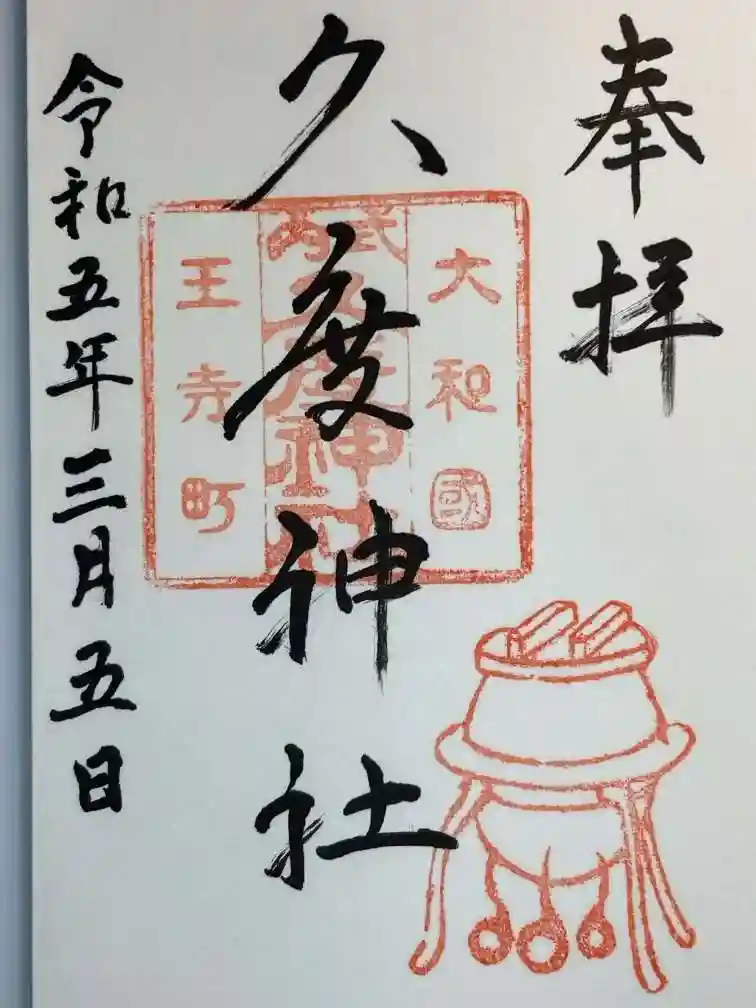 奉拝
大和國
式内
久度神社
王寺町
久度神社
令和五年三月五日